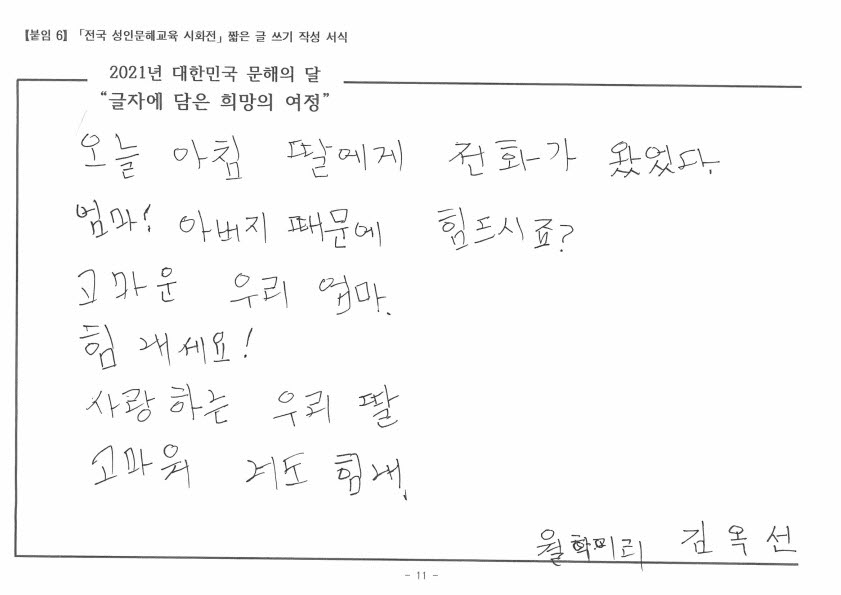 【붙임 6】 「전국 성인문해교육 시화전」 짧은 글 쓰기 작성 서식
2021년 대한민국 문해의 달
“글자에 담은 희망의 여정”
오늘 아침 딸에게 전화가 왔었다.
엄마! 아버지 때문에 힘드시죠?
고마운 우리 엄마.
힘 내세요!
사랑하는 우리 딸
고마워 너도 힘내.
월학미리 김옥선
- 11 -